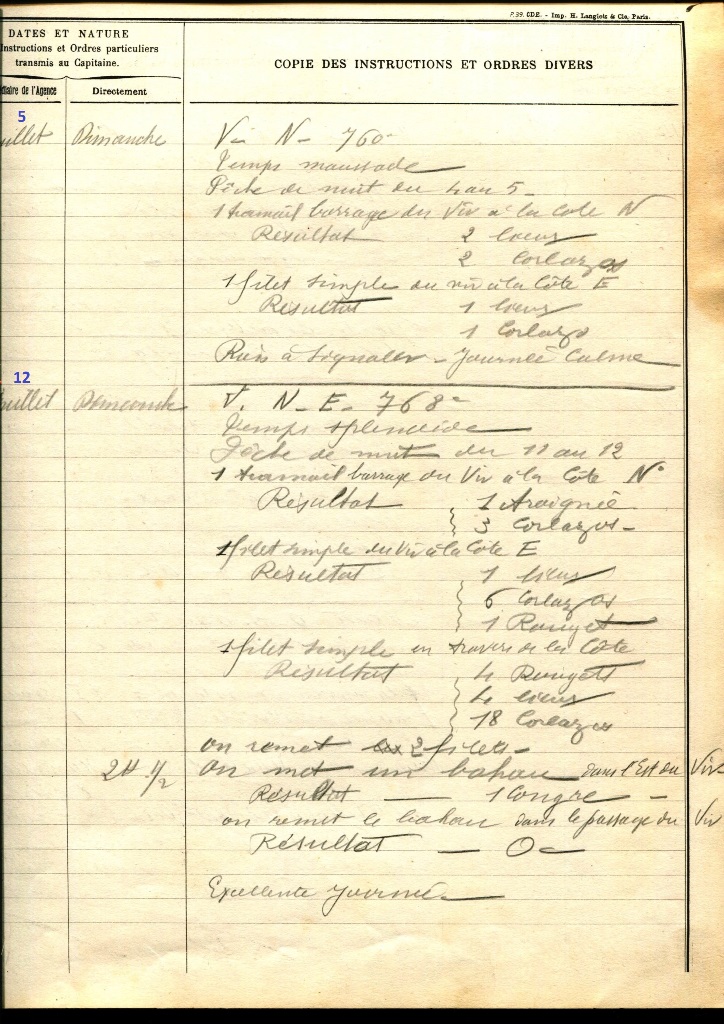 P.39. CDE. - Imp. H. Langlois & Cie, Paris.
DATES ET NATURE
Instructions et Ordres particuliers
transmis au Capitaine.
COPIE DES INSTRUCTIONS ET ORDRES DIVERS
diaire de l'Agence
Directement
5
uillet Dimanche V- N- 760-
Temps maussade
Pêche de nuit du 4 au 5-
1 tramail barrage du Viv à la Cote N
Résultat 2 lieux
2 Corlazos
1 filet simple du viv à la Côte E
Résultat 1 lieux
1 Corlazo
Rien à signaler - Journée Calme
12
uillet Dimanche V. N-E- 768-
Temps splendide
Pêche de nuit du 11 au 12
1 tramail barrage du Viv à la Côte N°
Résultat 1 Araignée
3 Corlazos-
1 filet simple du Viv à la Côte E
Résultat 1 lieux
6 Corlazos
1 Rouget
1 filet simple en travers de la Côte
Résultat 4 Rougets
4 lieux
18 Corlazos
on remet 2 filets-
2H 1/2 On met un bahau dans l'Est du Viv
Résultat — 1 Congre -
on remet le bahau dans le passage du Viv
Résultat — 0-
Excellente Journée